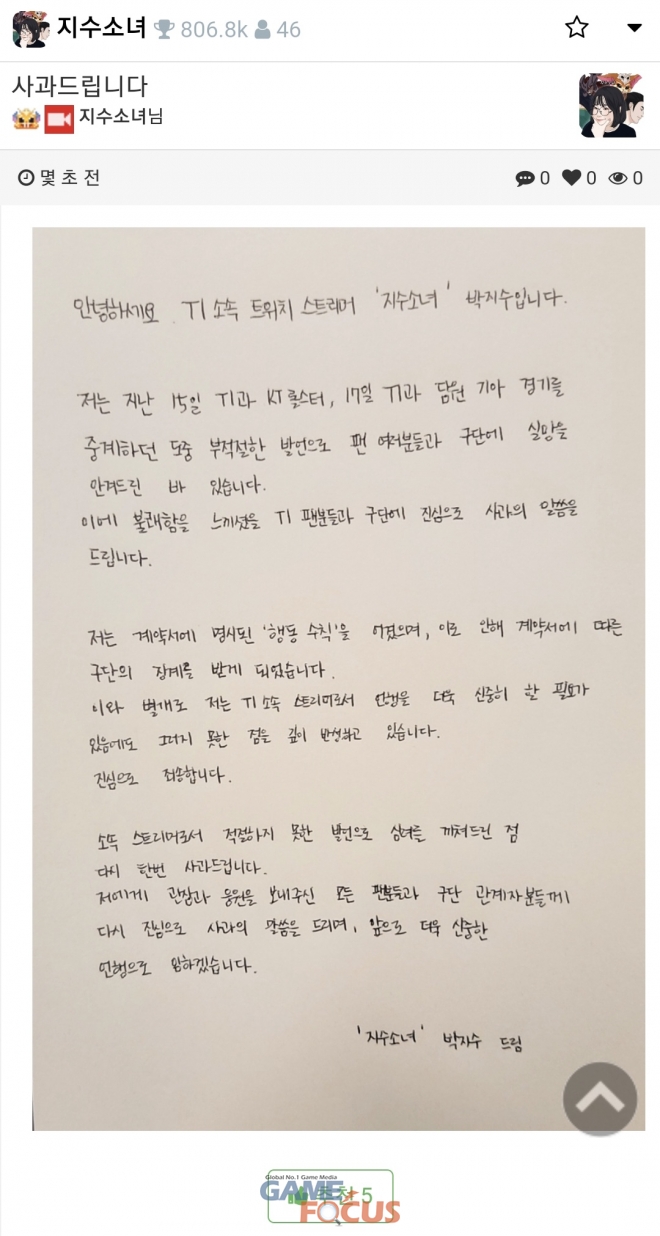 지수소녀 806.8k 46
사과드립니다
지수소녀님
몇 초 전 0 0 0
안녕하세요. T1 소속 트위치 스트리머 '지수소녀' 박지수입니다.
저는 지난 15일 T1과 KT 롤스터, 17일 T1과 담원 기아 경기를
중계하던 도중 부적절한 발언으로 팬 여러분들과 구단에 실망을
안겨드린 바 있습니다.
이에 불쾌함을 느끼셨을 T1 팬분들과 구단에 진심으로 사과의 말씀을
드립니다.
저는 계약서에 명시된 '행동 수칙'을 어겼으며, 이로 인해 계약서에 따른
구단의 징계를 받게 되었습니다.
이와 별개로 저는 T1 소속 스트리머로서 언행을 더욱 신중히 할 필요가
있음에도 그러지 못한 점을 깊이 반성하고 있습니다.
진심으로 죄송합니다.
소속 스트리머로서 적절하지 못한 발언으로 심려를 끼쳐드린 점
다시 한번 사과드립니다.
저에게 관심과 응원을 보내주신 모든 팬분들과 구단 관계자분들께
다시 진심으로 사과의 말씀을 드리며, 앞으로 더욱 신중한
언행으로 임하겠습니다.
'지수소녀' 박지수 드림
Global No.1 Game Media
GAME 추천 5
FOCUS